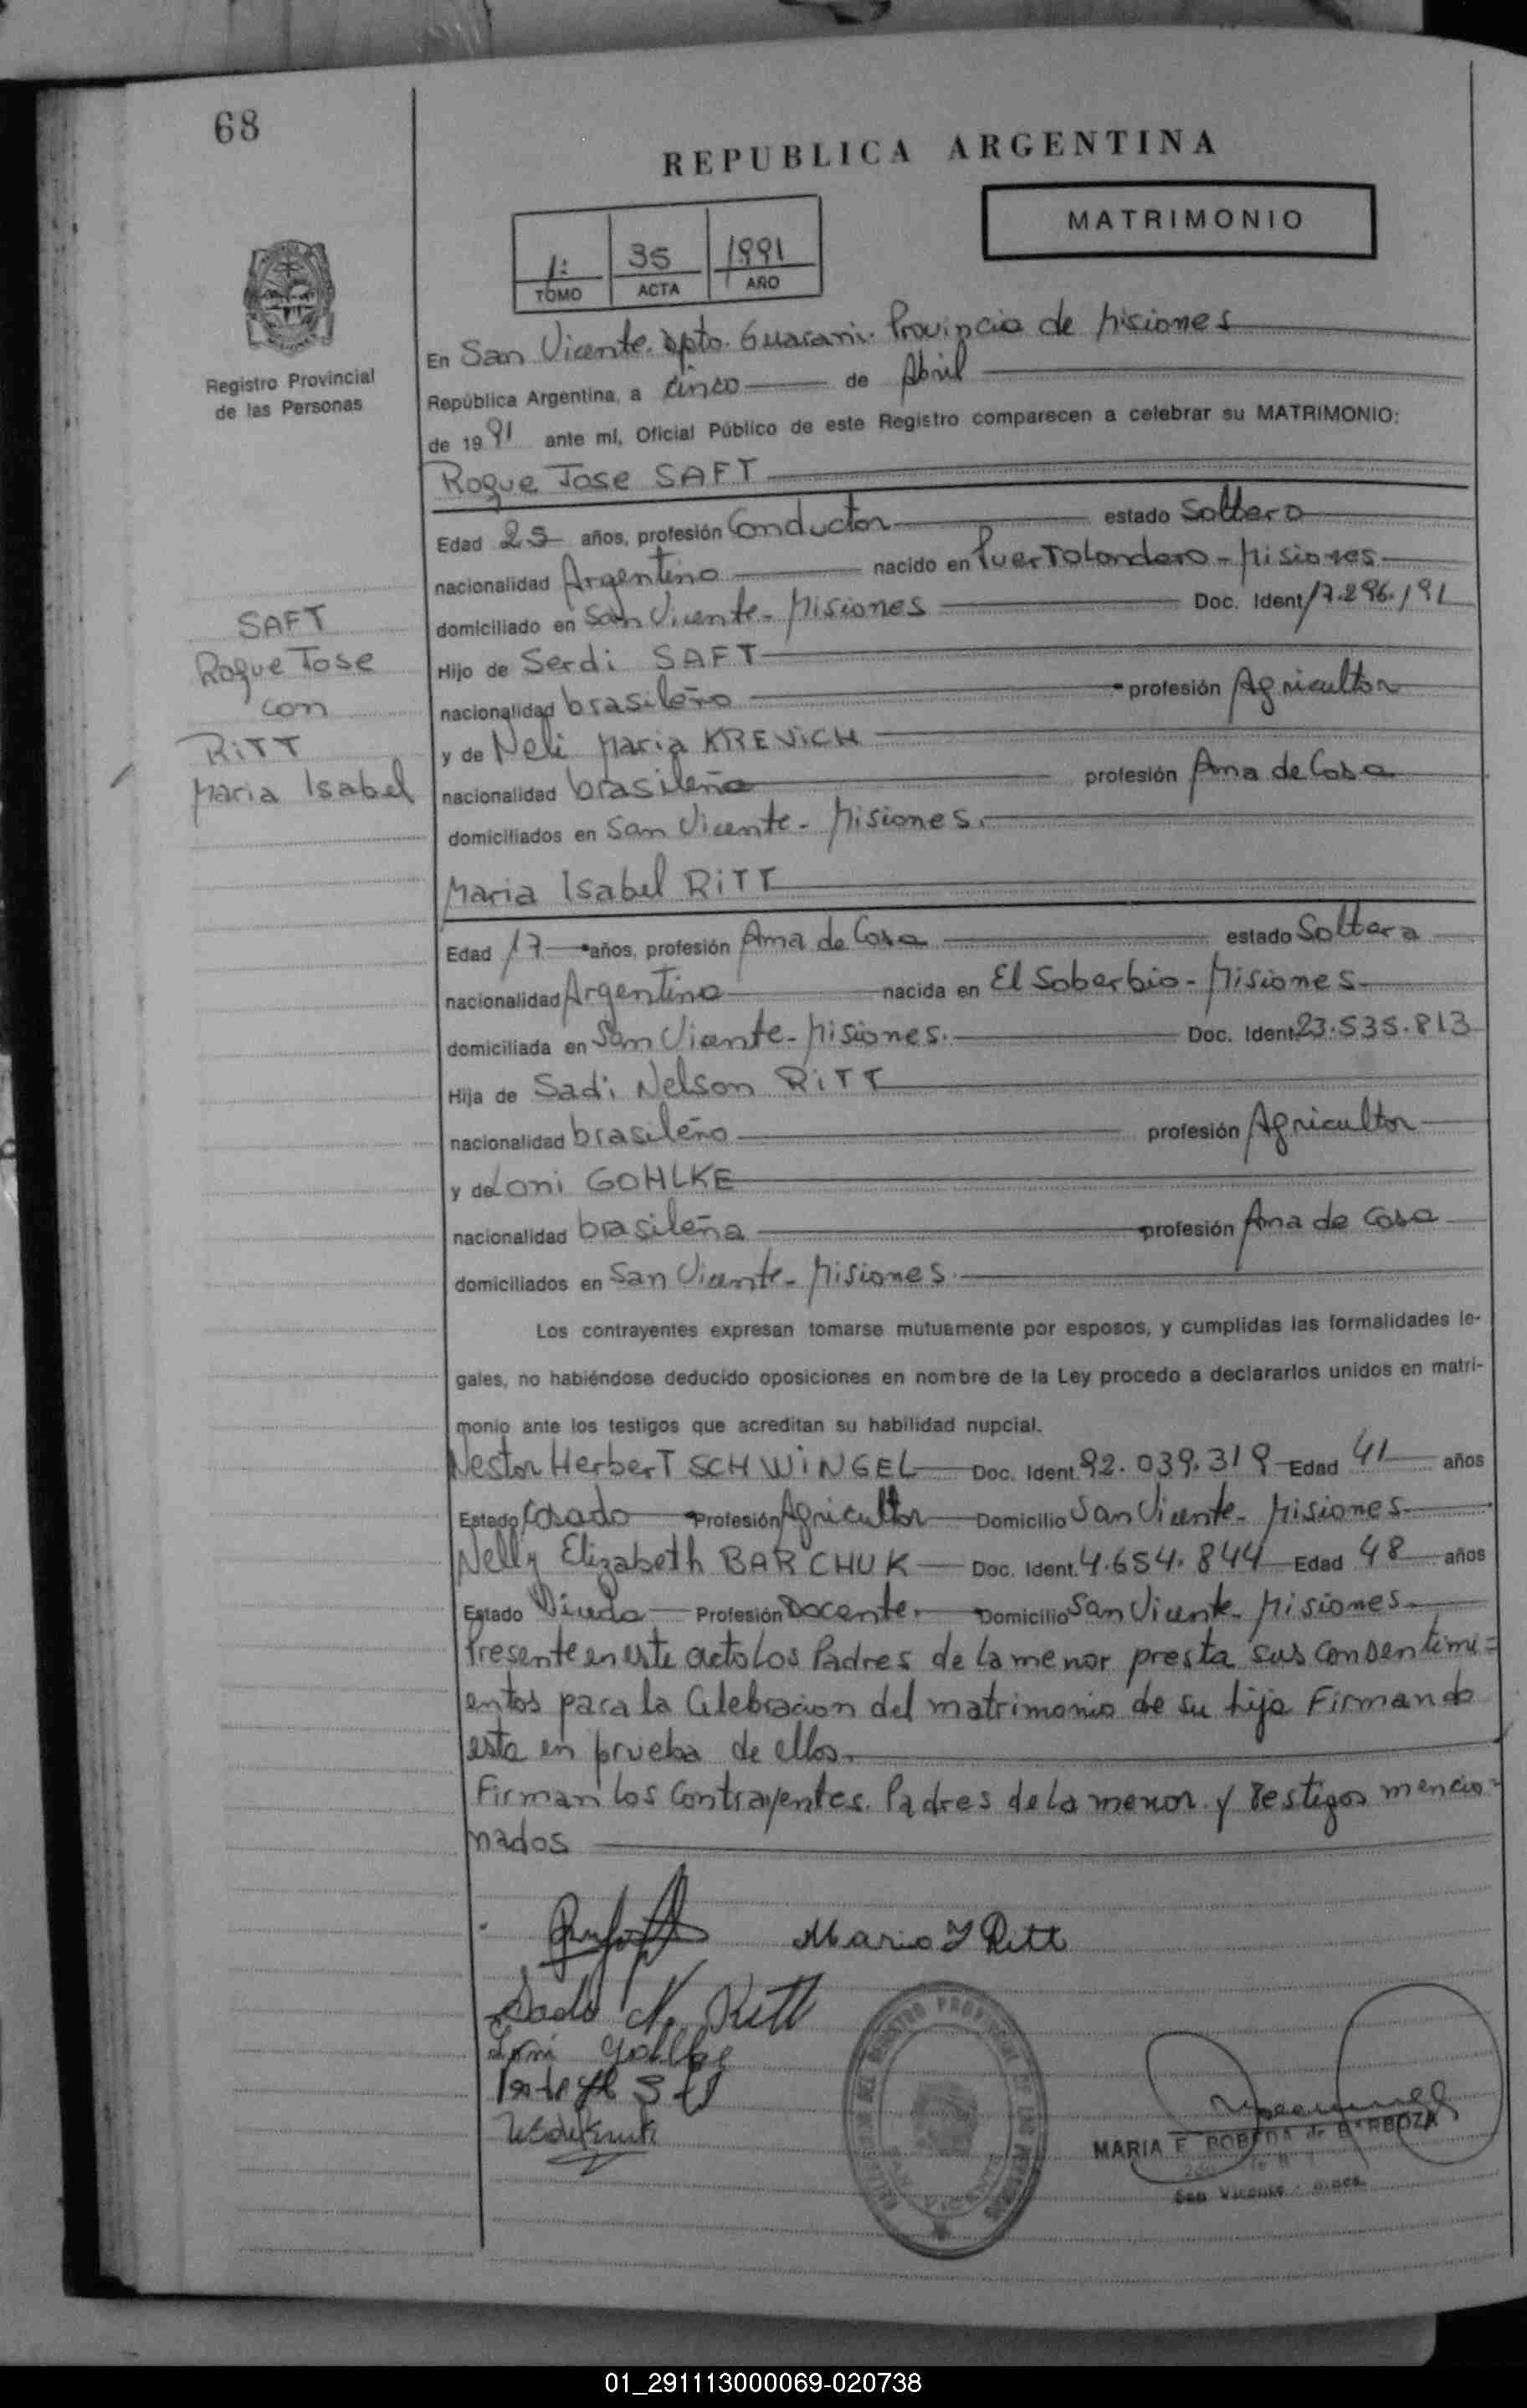 68
REPUBLICA ARGENTINA
MATRIMONIO
1: 35 1991
TOMO ACTA AÑO
Registro Provincial
de las Personas
En San Vicente. Dpto. Guarani. Provincia de Misiones
República Argentina, a cinco de Abril
de 1991 ante mí, Oficial Público de este Registro comparecen a celebrar su MATRIMONIO:
Roque Jose SAFT
Edad 25 años, profesión Conductor estado Soltero
nacionalidad Argentino nacido en Puerto Londero - Misiones
domiciliado en San Vicente - Misiones Doc. Ident 17.296.191
SAFT
Roque Jose
con
RITT
Maria Isabel
Hijo de Serdi SAFT
nacionalidad brasileño profesión Agricultor
y de Neli Maria KREVICH
nacionalidad brasileña profesión Ama de Casa
domiciliados en San Vicente - Misiones.
Maria Isabel RITT
Edad 17 años, profesión Ama de Casa estado Soltera
nacionalidad Argentina nacida en El Soberbio - Misiones
domiciliada en San Vicente - Misiones. Doc. Ident. 23.535.813
Hija de Sadi Nelson RITT
nacionalidad brasileño profesión Agricultor
y de Loni GOHLKE
nacionalidad brasileña profesión Ama de Casa
domiciliados en San Vicente - Misiones.
Los contrayentes expresan tomarse mutuamente por esposos, y cumplidas las formalidades le-
gales, no habiéndose deducido oposiciones en nombre de la Ley procedo a declararlos unidos en matri-
monio ante los testigos que acreditan su habilidad nupcial.
Nestor Herbert SCHWINGEL Doc. Ident. 92.039.319 Edad 41 años
Estado Casado Profesión Agricultor Domicilio San Vicente - Misiones
Nelly Elizabeth BARCHUK Doc. Ident. 4.654.844 Edad 48 años
Estado Viuda Profesión Docente. Domicilio San Vicente - Misiones
Presente en este acto Los Padres de la menor presta sus consentimi=
entos para la Celebracion del matrimonio de su hija Firmando
esta en prueba de ellos.
Firman los Contrayentes. Padres de la menor y Testigos mencio=
nados
Maria I Ritt
Sadi N. Ritt
Loni Gohlke
MARIA E. de BARBOZA
San Vicente
01_291113000069-020738